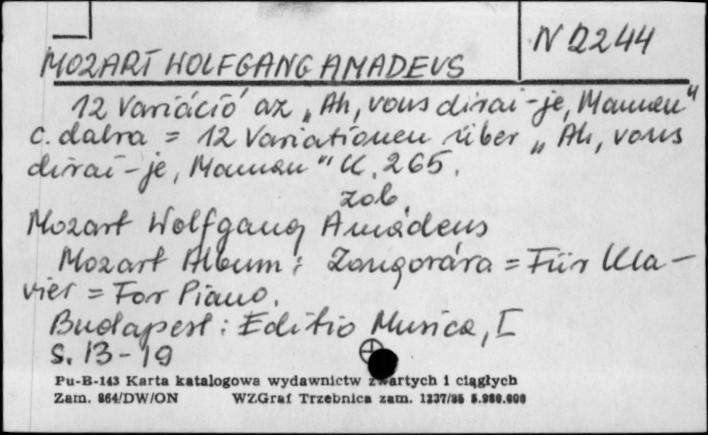 N 2244
MOZART WOLFGANG AMADEUS
12 Variáció az „Ah, vous dirai-je, Maman"
c. dalra = 12 Variationen über „Ah, vous
dirai-je, Maman" K. 265.
zob.
Mozart Wolfgang Amadeus
Mozart Album : Zongorára = Für Kla-
vier = For Piano.
Budapest : Editio Musica, I
S. 13-19
Pu-B-143 Karta katalogowa wydawnictw zwartych i ciągłych
Zam. 864/DW/ON WZGraf Trzebnica zam. 1237/85 5.980.000